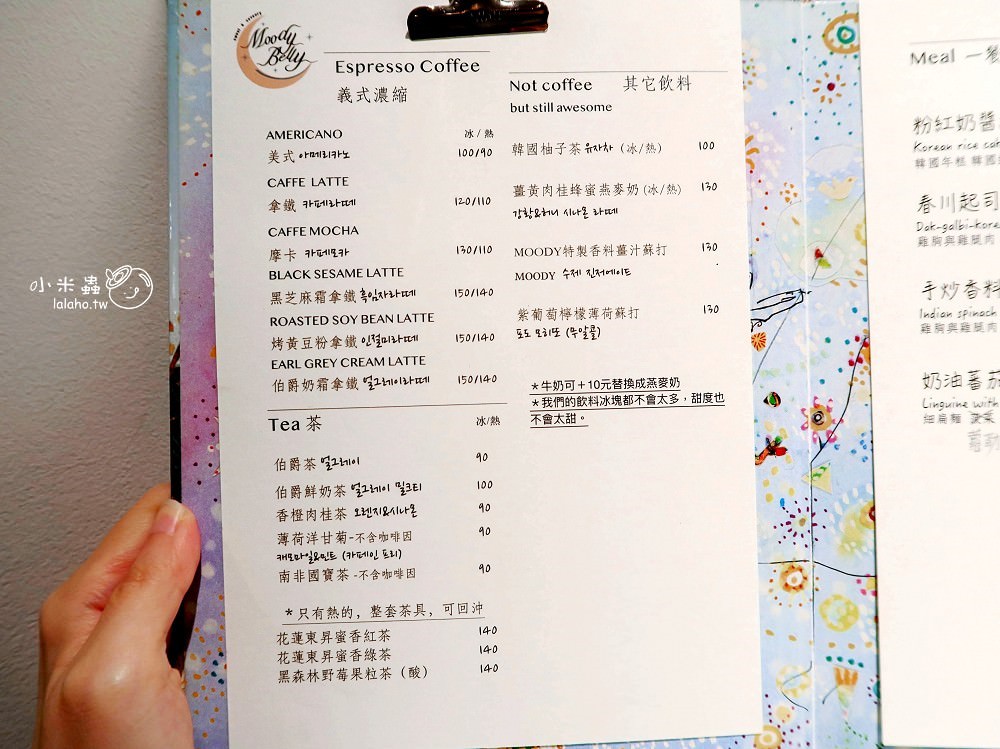 Moody
Belly
Espresso Coffee
義式濃縮
AMERICANO 冰/熱
美式 아메리카노 100/90
CAFFE LATTE
拿鐵 카페라떼 120/110
CAFFE MOCHA
摩卡 카페모카 130/110
BLACK SESAME LATTE
黑芝麻霜拿鐵 흑임자라떼 150/140
ROASTED SOY BEAN LATTE
烤黃豆粉拿鐵 인절미라떼 150/140
EARL GREY CREAM LATTE
伯爵奶霜拿鐵 얼그레이라떼 150/140
Tea 茶 冰/熱
伯爵茶 얼그레이 90
伯爵鮮奶茶 얼그레이 밀크티 100
香橙肉桂茶 오렌지&시나몬 90
薄荷洋甘菊-不含咖啡因 90
캐모마일&민트 (카페인 프리)
南非國寶茶-不含咖啡因 90
*只有熱的，整套茶具，可回沖
花蓮東昇蜜香紅茶 140
花蓮東昇蜜香綠茶 140
黑森林野莓果粒茶（酸） 140
Not coffee 其它飲料
but still awesome
韓國柚子茶 유자차 (冰/熱) 100
薑黃肉桂蜂蜜燕麥奶(冰/熱) 130
강황&허니 시나몬 라떼
MOODY特製香料薑汁蘇打 130
MOODY 수제 진저에이드
紫葡萄檸檬薄荷蘇打 130
포도 모히또 (무알콜)
*牛奶可＋10元替換成燕麥奶
*我們的飲料冰塊都不會太多，甜度也
不會太甜。
Meal 一
粉紅奶醬
Korean rice cak
韓國年糕 韓國
春川起司
Dak-galbi-kore
雞胸與雞腿肉
手炒香料
Indian spinach
雞胸與雞腿肉
奶油蕃茄
Linguine with
細扁麵 菠菜
小米蟲
lalaho.tw